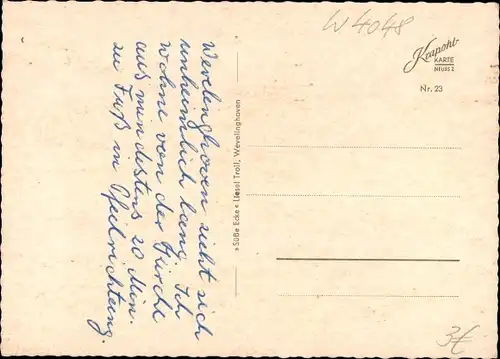 Wevelinghoven zieht sich
unheimlich lang. Ich
wohne von der Kirche
aus mindestens 20 Min.
zu Fuß in Pfeilrichtung.
»Süße Ecke« Liesel Troll, Wevelinghoven
W 4048
Krapohl-
KARTE
NEUSS 2
Nr. 23
3€